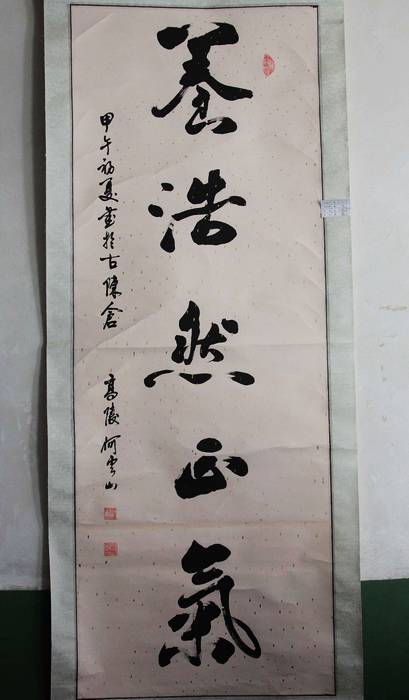 養浩然正氣
甲午初夏書於古陳倉
高陵何雲山